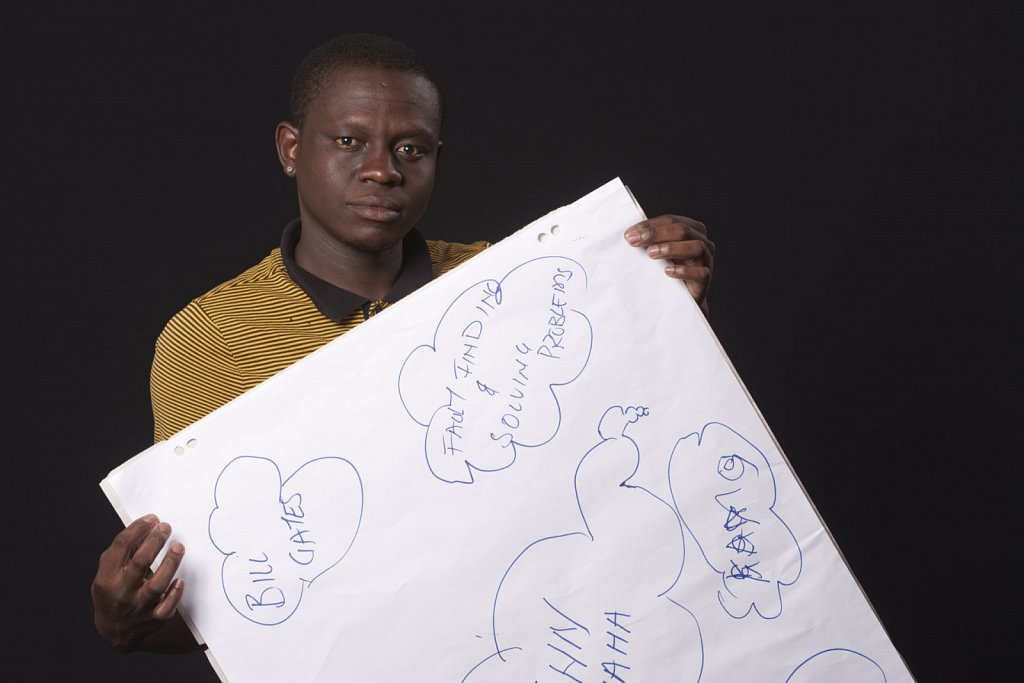 FAULT FINDING
&
SOLVING
PROBLEMS
BILL
GATES
HN
AHA